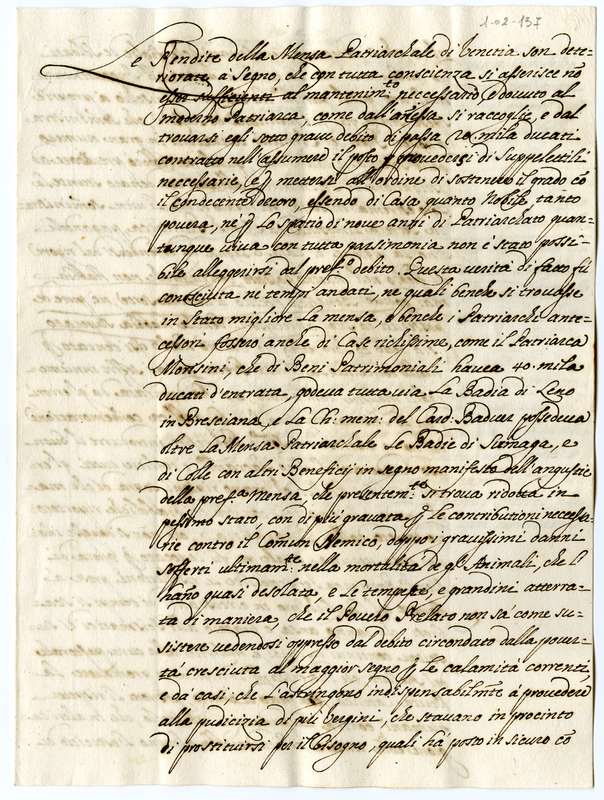 1-02-137
Le Rendite della Mensa Patriarchale di Venetia son dete=
riorate à segno, che con tutta conscienza si asserisce nõ
esser sufficienti al mantenim.to neccessario, e dovuto al
moderno Patriarca, come dall'annessa si raccoglie, e dal
trovarsi egli sotto grave debito di passa 20 mila ducati
contratto nell'assumere il posto p provedersi di suppelletili
neccessarie, e p mettersi all'ordine di sostenere il grado cõ
il condecente decoro, essendo di Casa quanto Nobile, tanto
povera, ne p lo spatio di nove anni di Patriarchato quan=
tunque viva con tutta parsimonia non è stato possi=
bile alleggerirsi dal pref.o debito. Questa verità di fatto fù
conosciuta ne tempi andati, ne quali benche si trovasse
in stato migliore la mensa, e benche i Patriarchi ante=
cessori fossero anche di Case richissime, come il Patriarca
Morosini, che di Beni Patrimoniali havea 40. mila
ducati d'entrata, godeva tuttavia la Badia di Leno
in Bresciana, e la Ch: mem: del Card: Badoer possedeva
oltre la Mensa Patriarchale le Badie di Sumaga, e
di Colle con altri Beneficij in segno manifesto dell'angustie
della pref.a Mensa, che presentem.te si trova ridotta in
pessimo stato, con di più gravata p le contributioni necessa=
rie contro il Comun Nemico, doppo i gravissimi danni
sofferti ultimam.te nella mortalità de gl'Animali, che l'
hano quasi desolata, e le tempeste, e grandini atterra=
ta di maniera, che il Povero Prelato non sà come su=
sistere vedendosi oppresso dal debito circondato dalla pover=
tà cresciuta al maggior segno p le calamità correnti,
e da casi, che l'astringono indispensabilmte à provedere
alla pudicizia di più Vergini, che stavano in procinto
di prostituirsi per il bisogno, quali hà posto in sicuro cõ